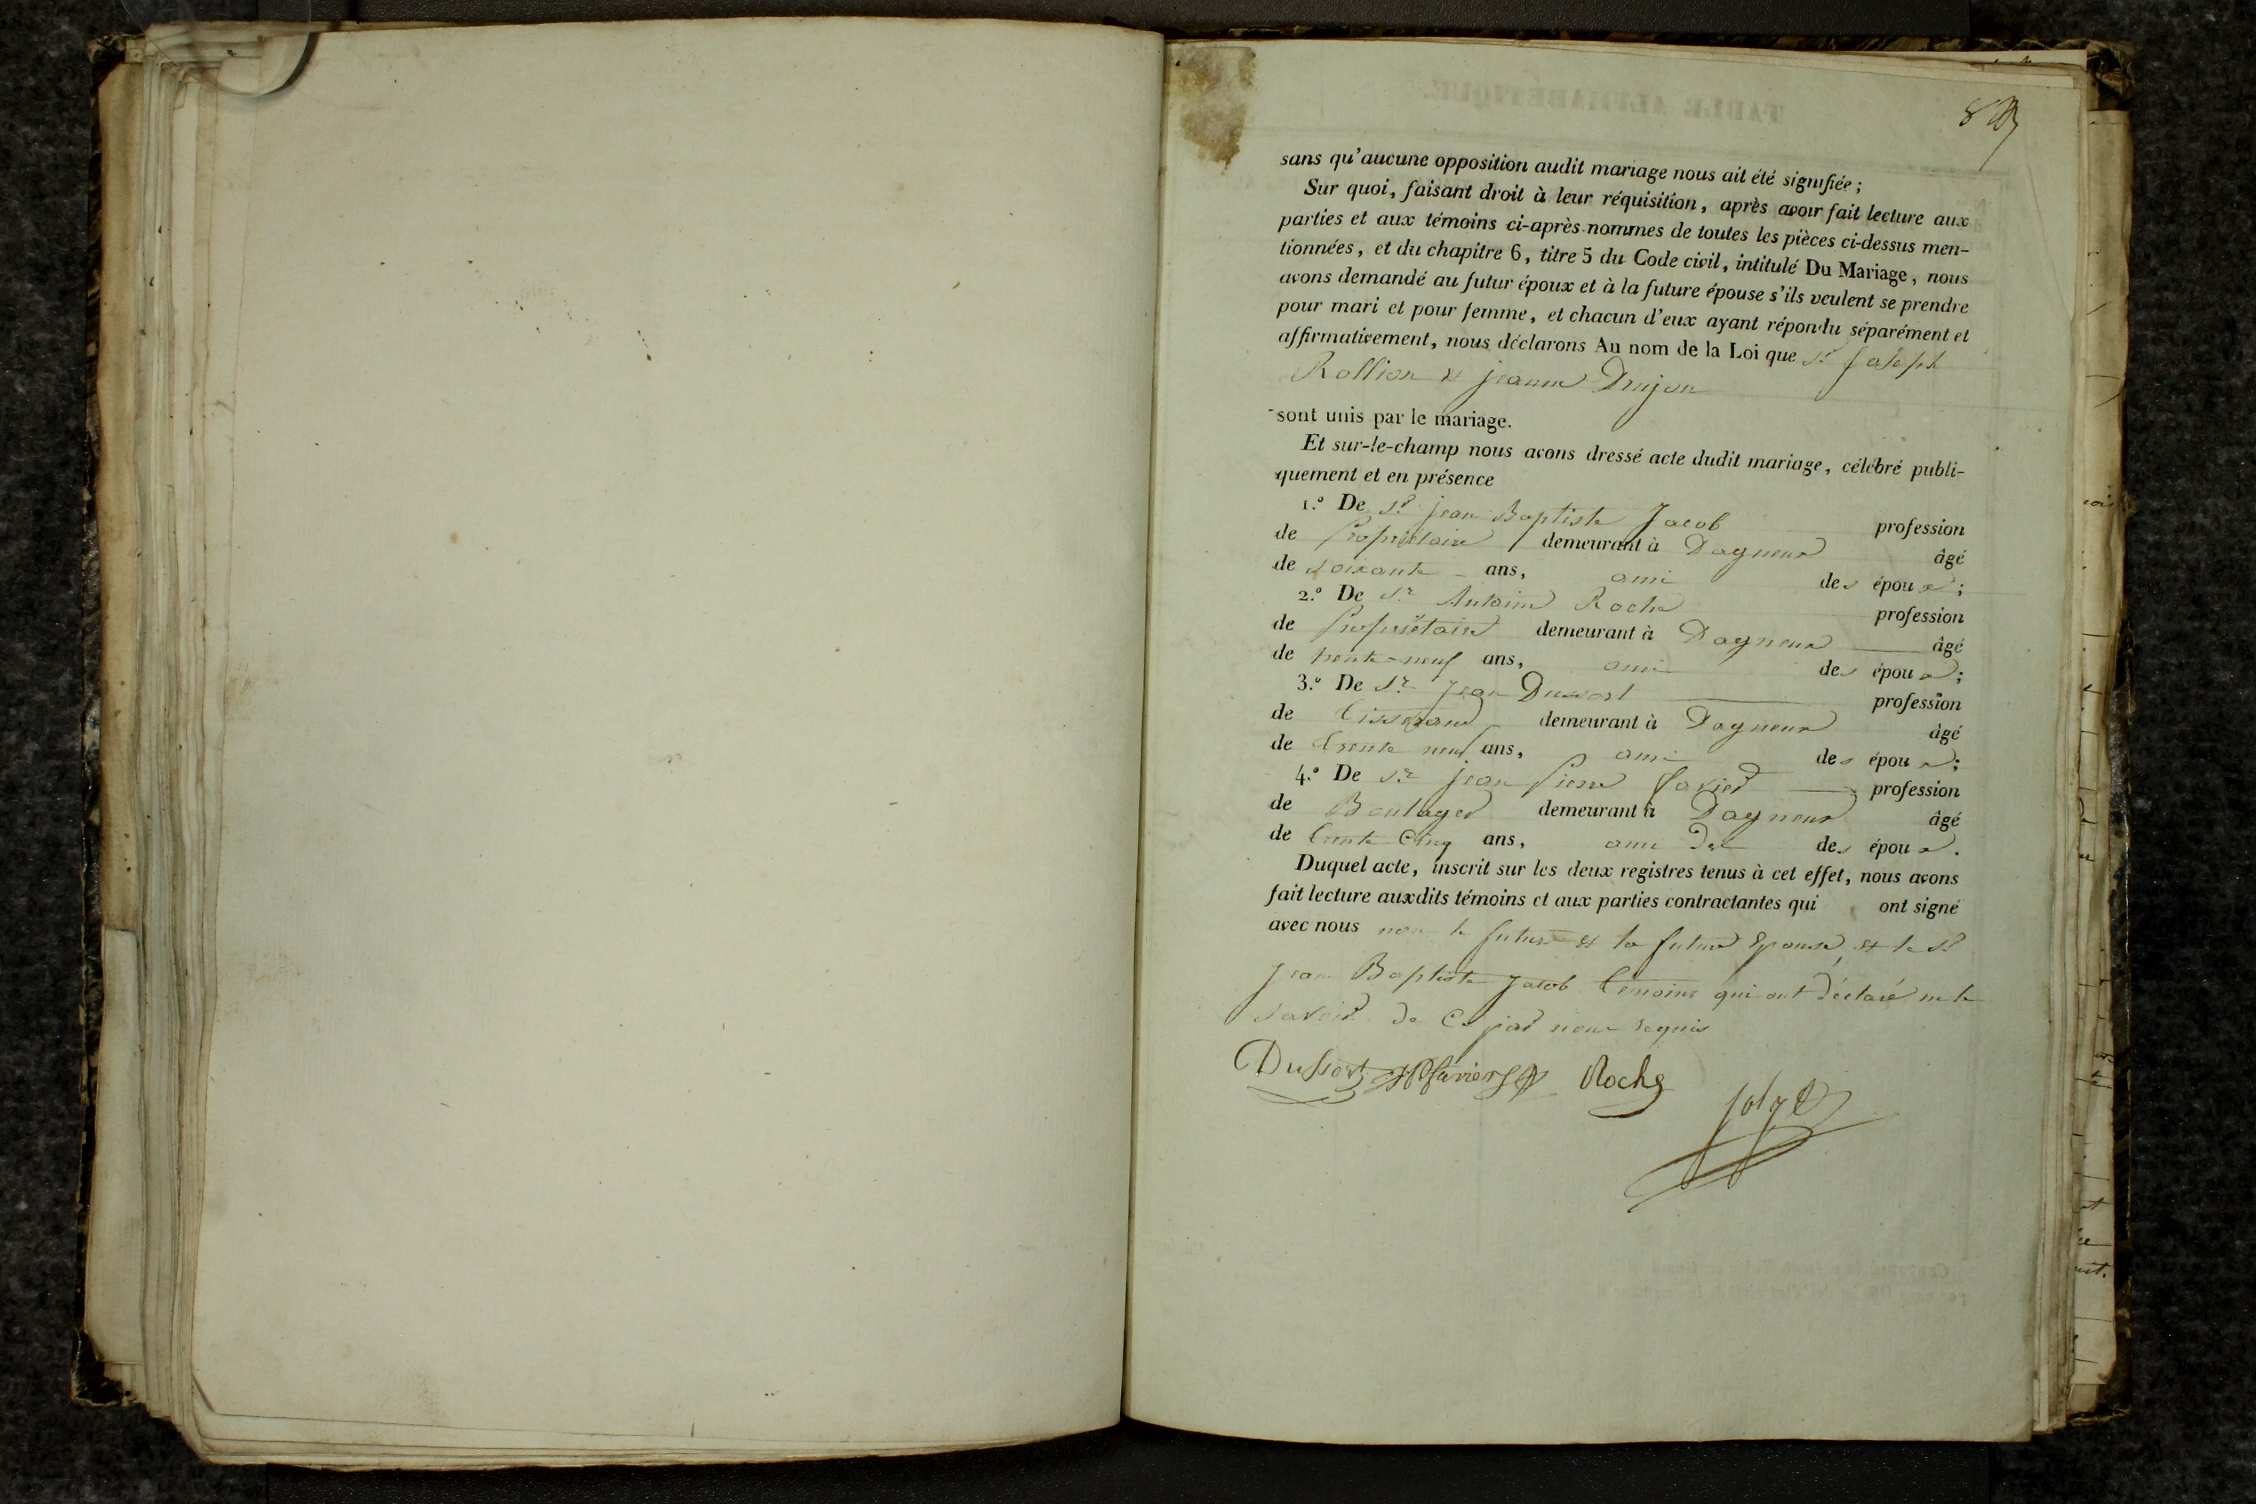 sans qu'aucune opposition audit mariage nous ait été signifiée ;
Sur quoi, faisant droit à leur réquisition, après avoir fait lecture aux
parties et aux témoins ci-après nommes de toutes les pièces ci-dessus men-
tionnées, et du chapitre 6, titre 5 du Code civil, intitulé Du Mariage, nous
avons demandé au futur époux et à la future épouse s'ils veulent se prendre
pour mari et pour femme, et chacun d'eux ayant répondu séparément et
affirmativement, nous déclarons Au nom de la Loi que Sr Joseph
Rollion et jeanne Drujon
sont unis par le mariage.
Et sur-le-champ nous avons dressé acte dudit mariage, célébré publi-
quement et en présence
1.º De Sr jean Baptiste Jacob profession
de Propriétaire demeurant à Dagneux âgé
de soixante ans, ami des époux ;
2.º De Sr Antoine Roche profession
de Propriétaire demeurant à Dagneux âgé
de trente-neuf ans, ami des époux ;
3.º De Sr Jean Dussort profession
de Tisserand demeurant à Dagneux âgé
de trente neuf ans, ami des époux ;
4.º De Sr jean Pierre Favier profession
de Boulager demeurant à Dagneux âgé
de trente Cinq ans, ami des des époux.
Duquel acte, inscrit sur les deux registres tenus à cet effet, nous avons
fait lecture auxdits témoins et aux parties contractantes qui ont signé
avec nous non le futur et la future Epouse, et le Sr
Jean Baptiste Jacob témoins qui ont déclaré ne le
savoir de Ce par nous requis
Dussort Favier Roche